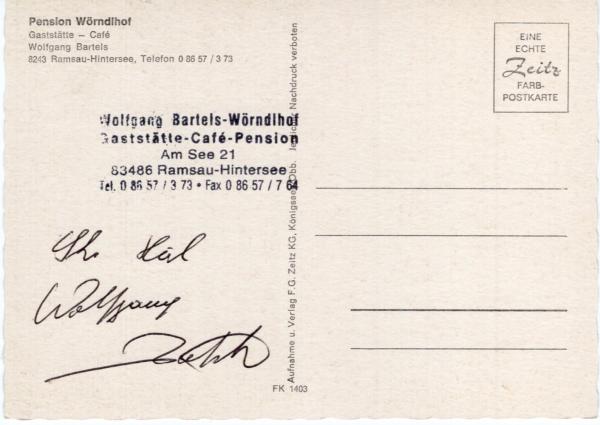 Pension Wörndlhof
Gaststätte – Café
Wolfgang Bartels
8243 Ramsau-Hintersee, Telefon 0 86 57 / 3 73
EINE
ECHTE
Zeitz
FARB-
POSTKARTE
Wolfgang Bartels-Wörndlhof
Gaststätte-Café-Pension
Am See 21
83486 Ramsau-Hintersee
Tel. 0 86 57 / 3 73 • Fax 0 86 57 / 7 64
Wolfgang
Aufnahme u. Verlag F.G. Zeitz KG, Königssee/Obb. Nachdruck verboten
FK 1403